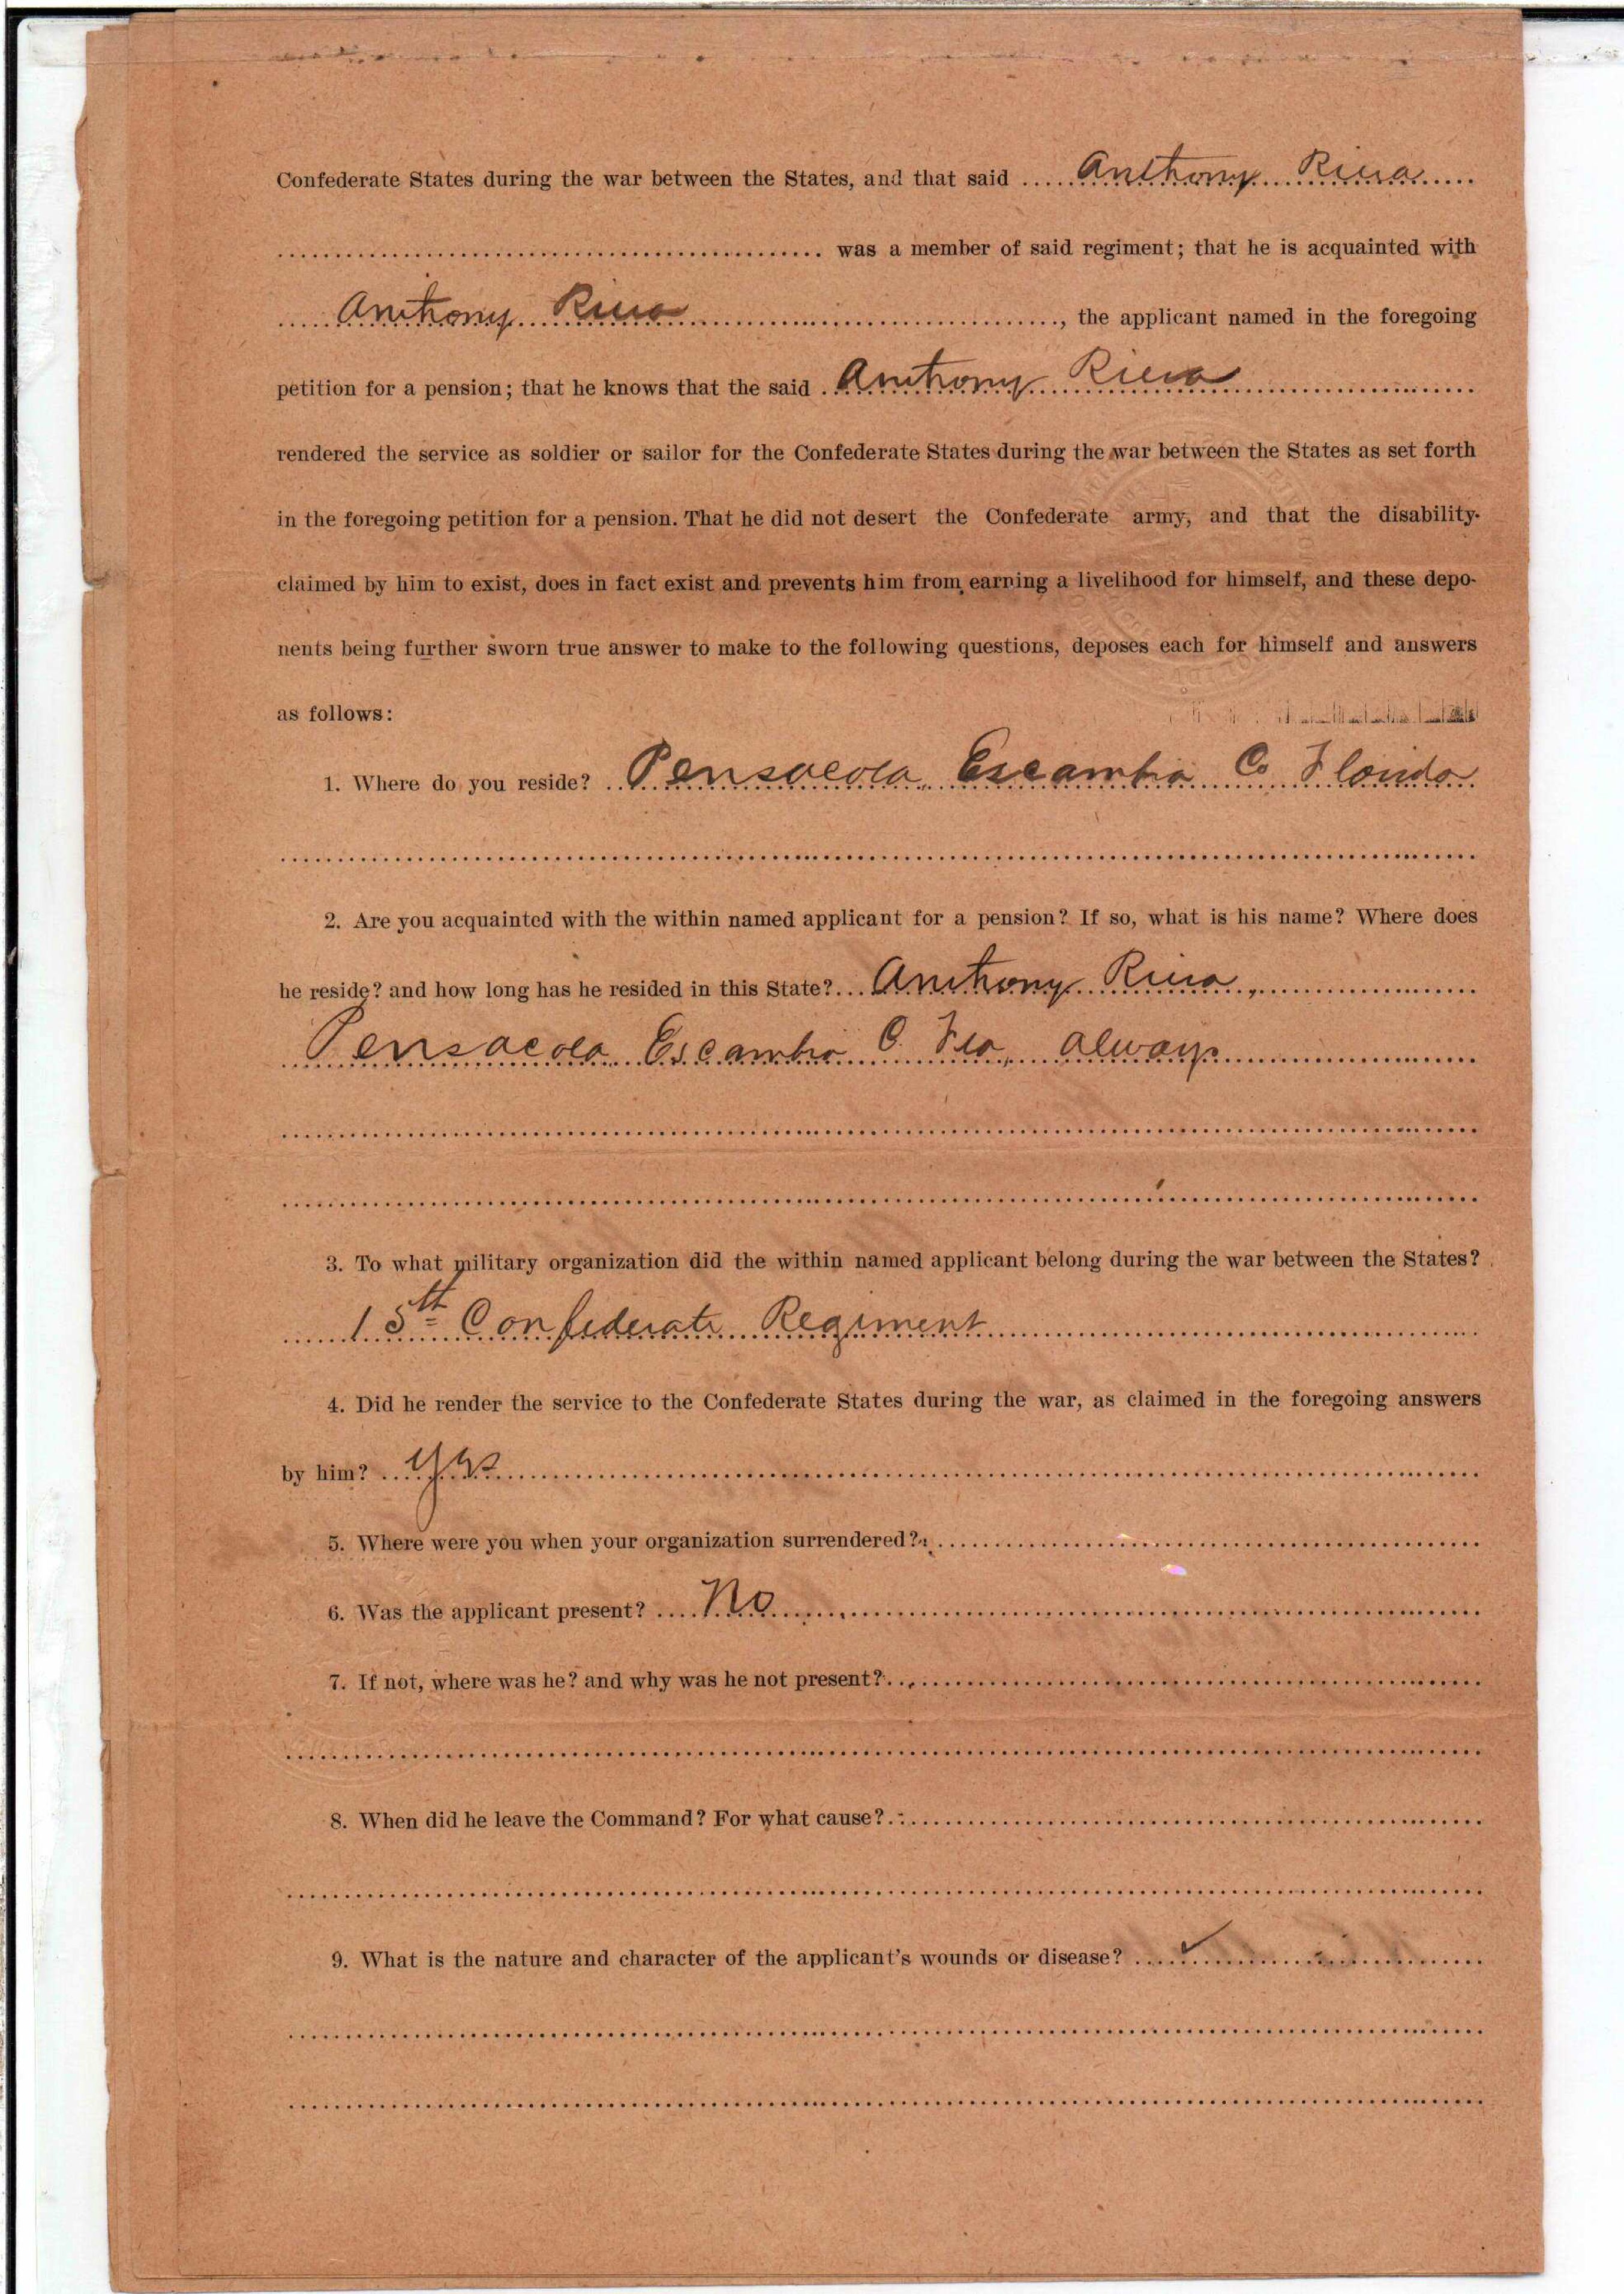 Confederate States during the war between the States, and that said Anthony Riera
was a member of said regiment; that he is acquainted with
Anthony Riera, the applicant named in the foregoing
petition for a pension; that he knows that the said Anthony Riera
rendered the service as soldier or sailor for the Confederate States during the war between the States as set forth
in the foregoing petition for a pension. That he did not desert the Confederate army, and that the disability
claimed by him to exist, does in fact exist and prevents him from earning a livelihood for himself, and these depo-
nents being further sworn true answer to make to the following questions, deposes each for himself and answers
as follows:
1. Where do you reside? Pensacola, Escambia Co Florida
2. Are you acquainted with the within named applicant for a pension? If so, what is his name? Where does
he reside? and how long has he resided in this State? Anthony Riera,
Pensacola, Escambia C. Fla, always
3. To what military organization did the within named applicant belong during the war between the States?
15th Confederate Regiment
4. Did he render the service to the Confederate States during the war, as claimed in the foregoing answers
by him? yes
5. Where were you when your organization surrendered?
6. Was the applicant present? No
7. If not, where was he? and why was he not present?
8. When did he leave the Command? For what cause?
9. What is the nature and character of the applicant's wounds or disease?